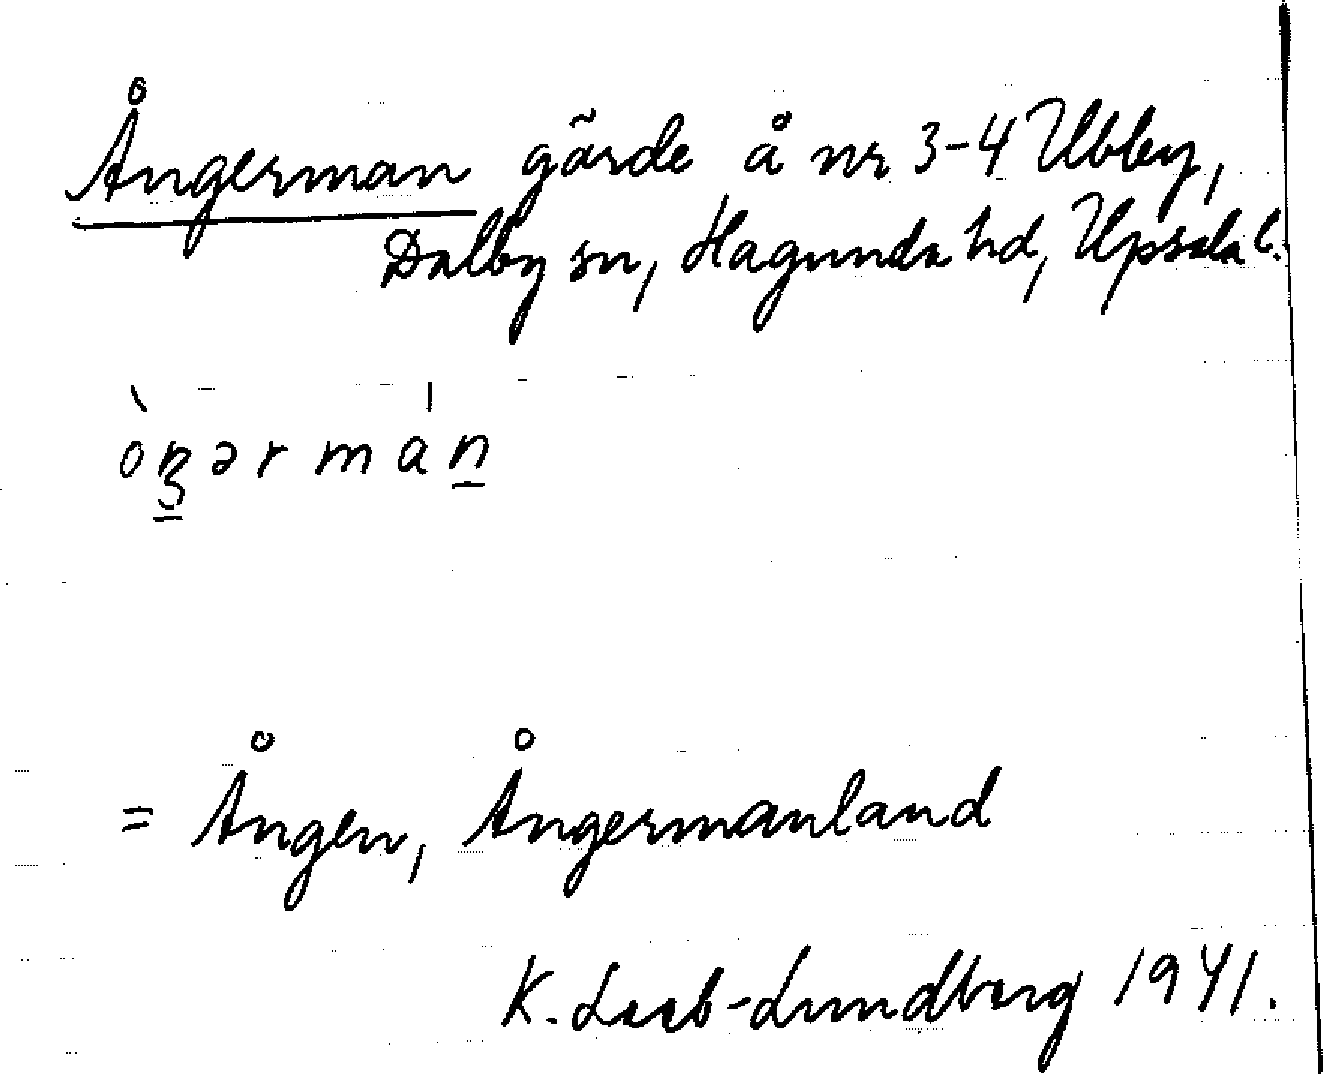 Ångerman gärde å nr 3-4 Ubby,
Dalby sn, Hagunda hd, Upsala l.
= Ången, Ångermanland
K. Leeb-Lundberg 1941.